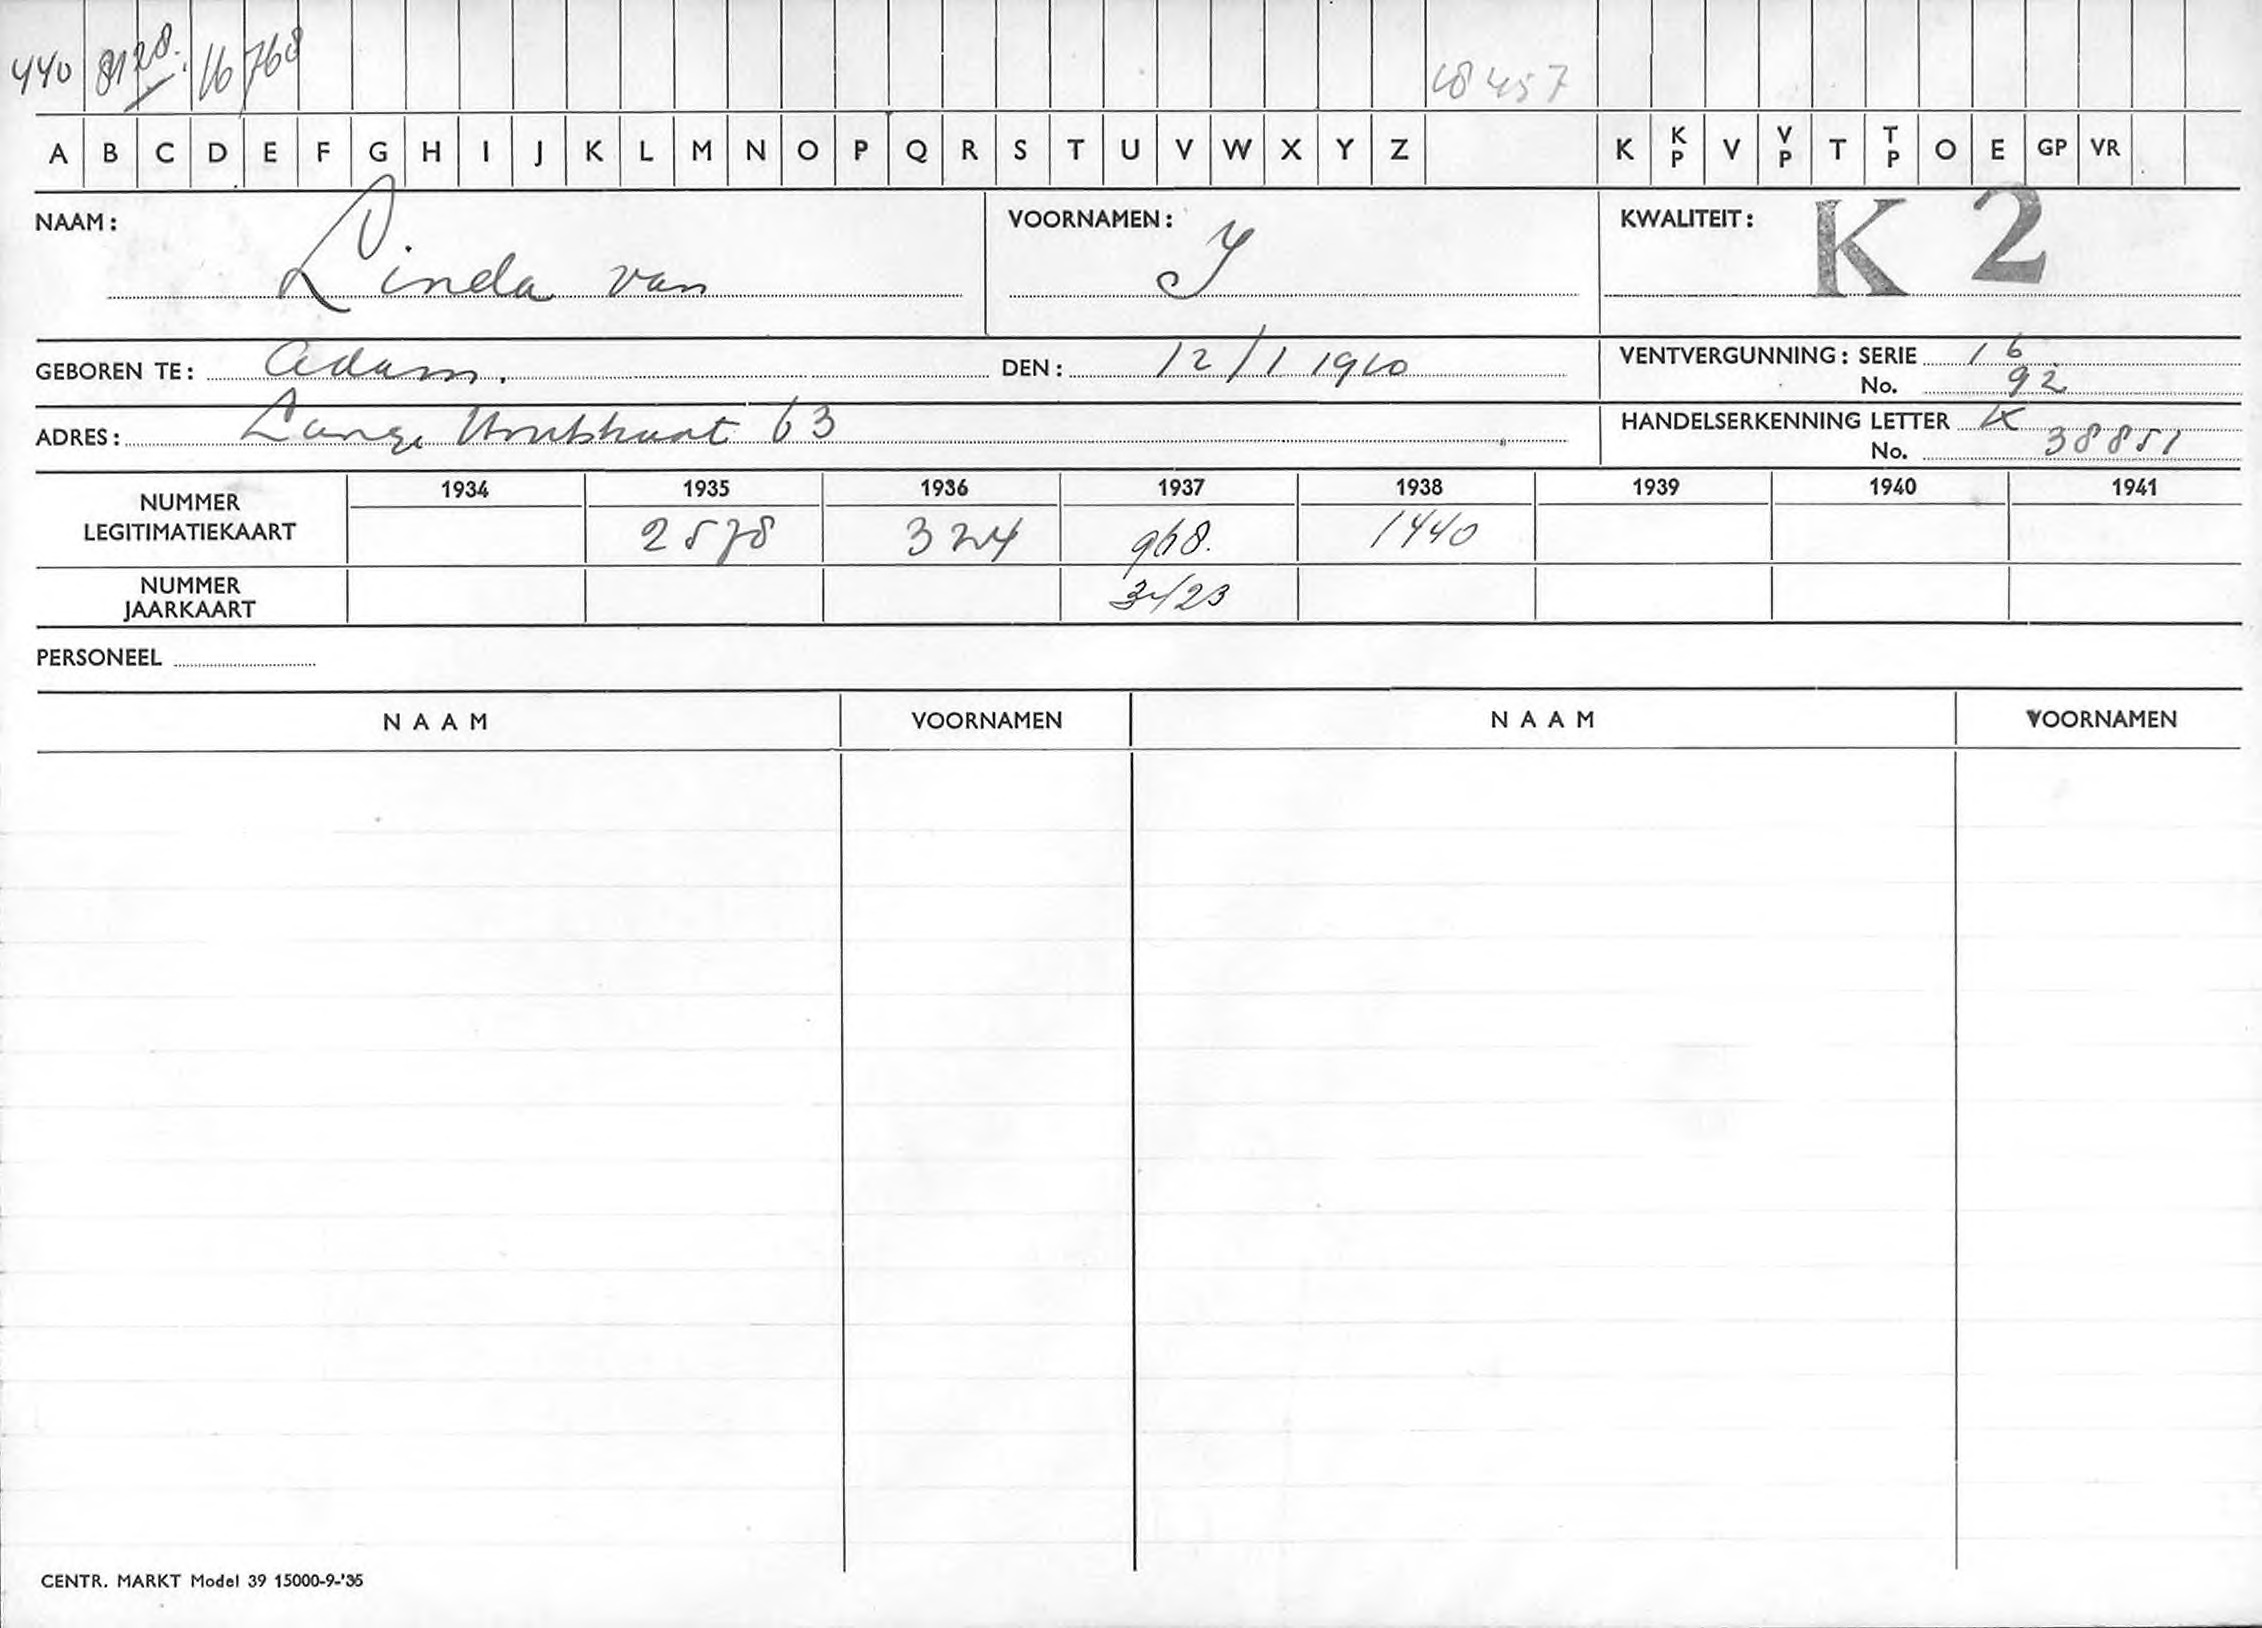 440 8128. 16768 18457
A B C D E F G H I J K L M N O P Q R S T U V W X Y Z K KP V VP T TP O E GP VR
NAAM: Linda van VOORNAMEN: J KWALITEIT: K 2
GEBOREN TE: Adam. DEN: 12/1 1910 VENTVERGUNNING: SERIE 16
No. 92
ADRES: Lange Houtstraat 63 HANDELSERKENNING LETTER K
No. 38851
NUMMER LEGITIMATIEKAART 1934 1935 1936 1937 1938 1939 1940 1941
2578 324 968. 1440
NUMMER JAARKAART
PERSONEEL
NAAM VOORNAMEN NAAM VOORNAMEN
CENTR. MARKT Model 39 15000-9-'35